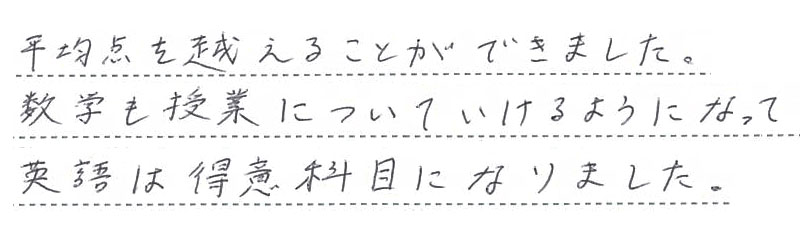 平均点を越えることができました。
数学も授業についていけるようになって
英語は得意科目になりました。